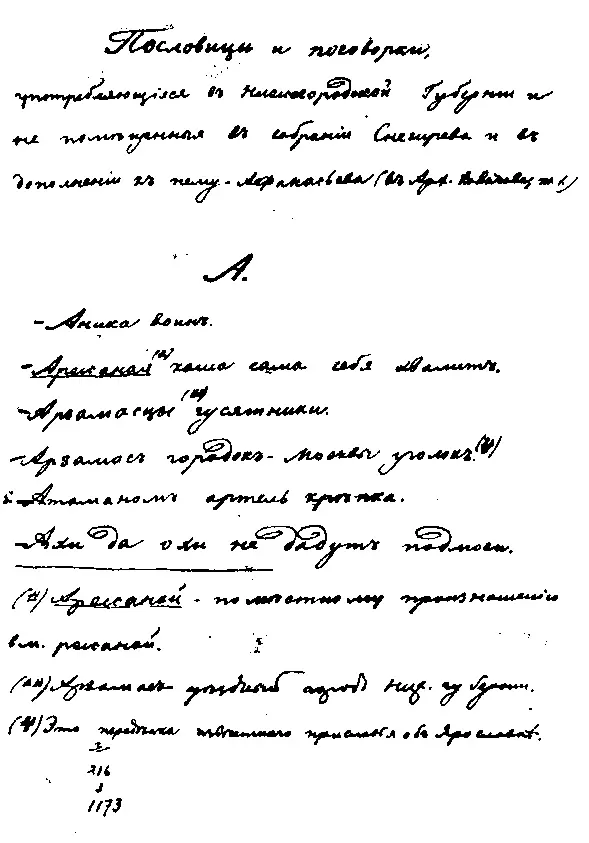 Пословицы и поговорки,
употребляющіяся въ Нижегородской Губерніи и
не помѣщенныя въ собраніи Снегирева и въ
дополненіи къ нему - Афанасьева (въ Арх. Калачова, т. 1)
А.
- Аника воинъ.
- Аржаная (*) каша сама себя хвалитъ.
- Арзамасцы (**) гусятники.
- Арзамасъ городокъ - Москвы уголокъ. (#)
- Атаманомъ артель крѣпка.
- Ахи да охи не дадутъ подмоги.
(*) Аржаной - помѣстному произношенію
вм. ржаной.
(**) Арзамасъ уѣздный городъ Ниж. губерніи.
(#) Это передѣлка извѣстнаго присловья объ Ярославлѣ.
2
216
3
1173